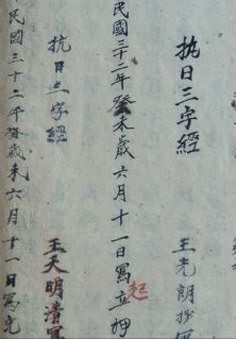 抗日三字經 王朗抄寫
民國三十二年癸未歲六月十一日寫立押
起
抗日三字經 王天明清寫
民國三十二年癸歲未六月十一日寫完